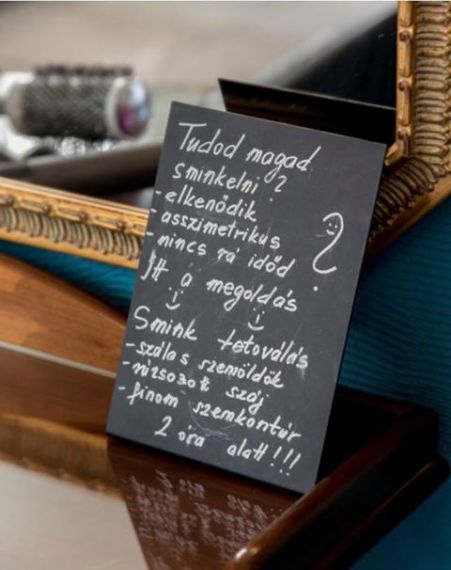 Tudod magad
sminkelni?
- elkenődik
- asszimetrikus
- nincs rá időd
?
Itt a megoldás
Smink tetoválás
- szálas szemöldök
- rúzsozott száj
- finom szemkontúr
2 óra alatt!!!